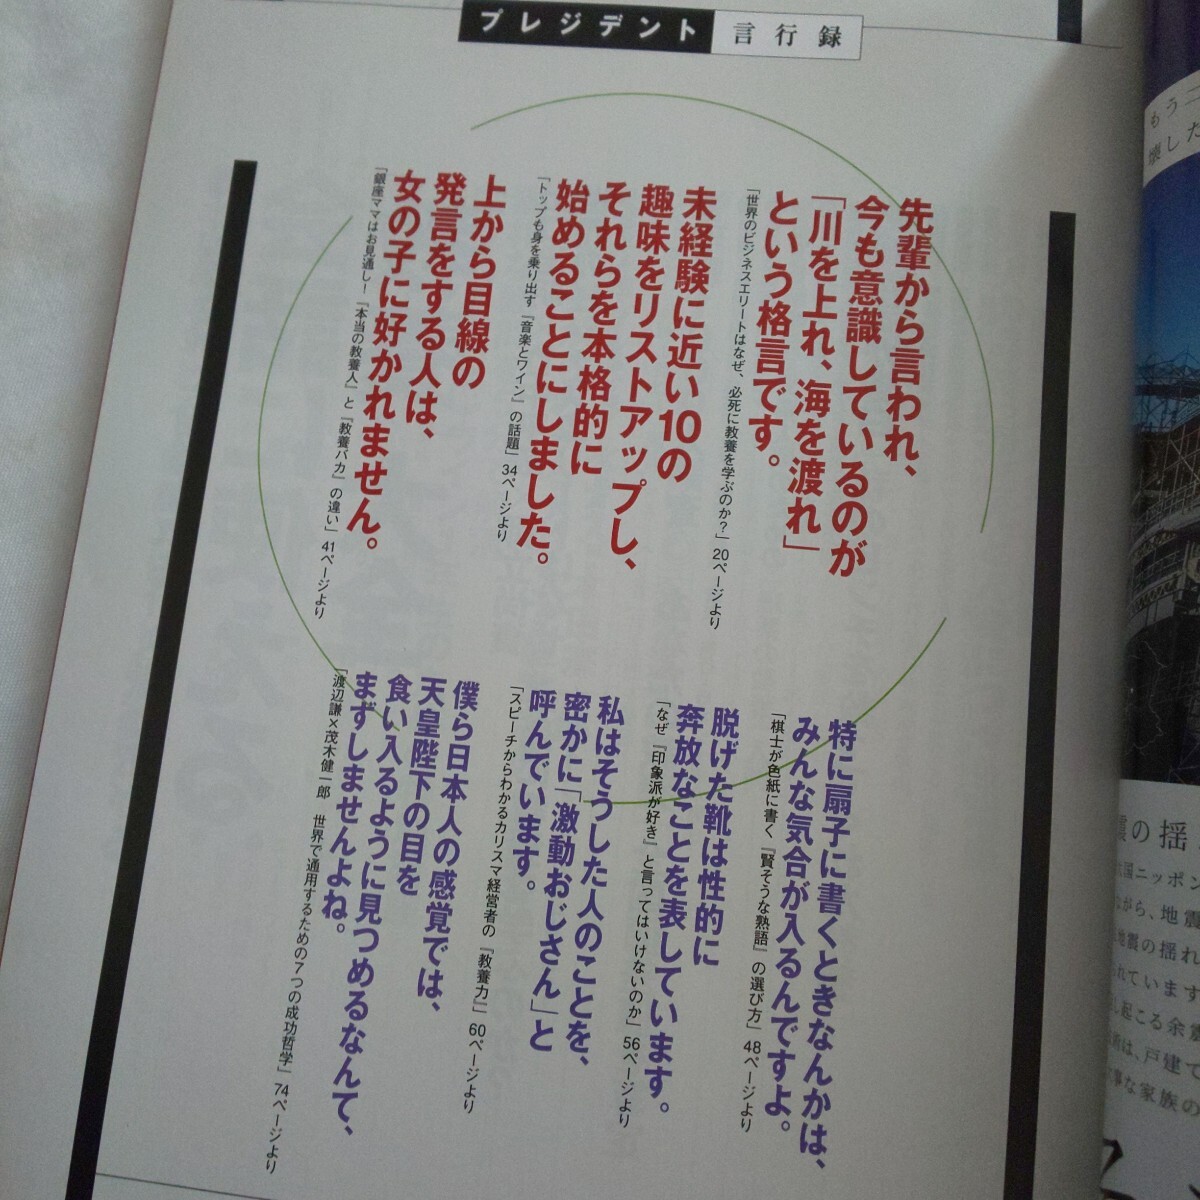 プレジデント 言行録
先輩から言われ、
今も意識しているのが
「川を上れ、海を渡れ」
という格言です。
「世界のビジネスエリートはなぜ、必死に教養を学ぶのか？」20ページより
未経験に近い10の
趣味をリストアップし、
それらを本格的に
始めることにしました。
「トップも身を乗り出す『音楽とワイン』の話題」34ページより
上から目線の
発言をする人は、
女の子に好かれません。
「銀座ママはお見通し！『本当の教養人』と『教養バカ』の違い」41ページより
特に扇子に書くときなんかは、
みんな気合が入るんですよ。
「棋士が色紙に書く『賢そうな熟語』の選び方」48ページより
脱げた靴は性的に
奔放なことを表しています。
「なぜ『印象派が好き』と言ってはいけないのか」56ページより
私はそうした人のことを、
密かに「激動おじさん」と
呼んでいます。
「スピーチからわかるカリスマ経営者の『教養力』」60ページより
僕ら日本人の感覚では、
天皇陛下の目を
食い入るように見つめるなんて、
まずしませんよね。
「渡辺謙×茂木健一郎　世界で通用するための7つの成功哲学」74ページより
もう二
懐した
震の揺
国ニッポン
ながら、地震
地震の揺れ
れています
し起こる余震
は、戸建て
事な家族の